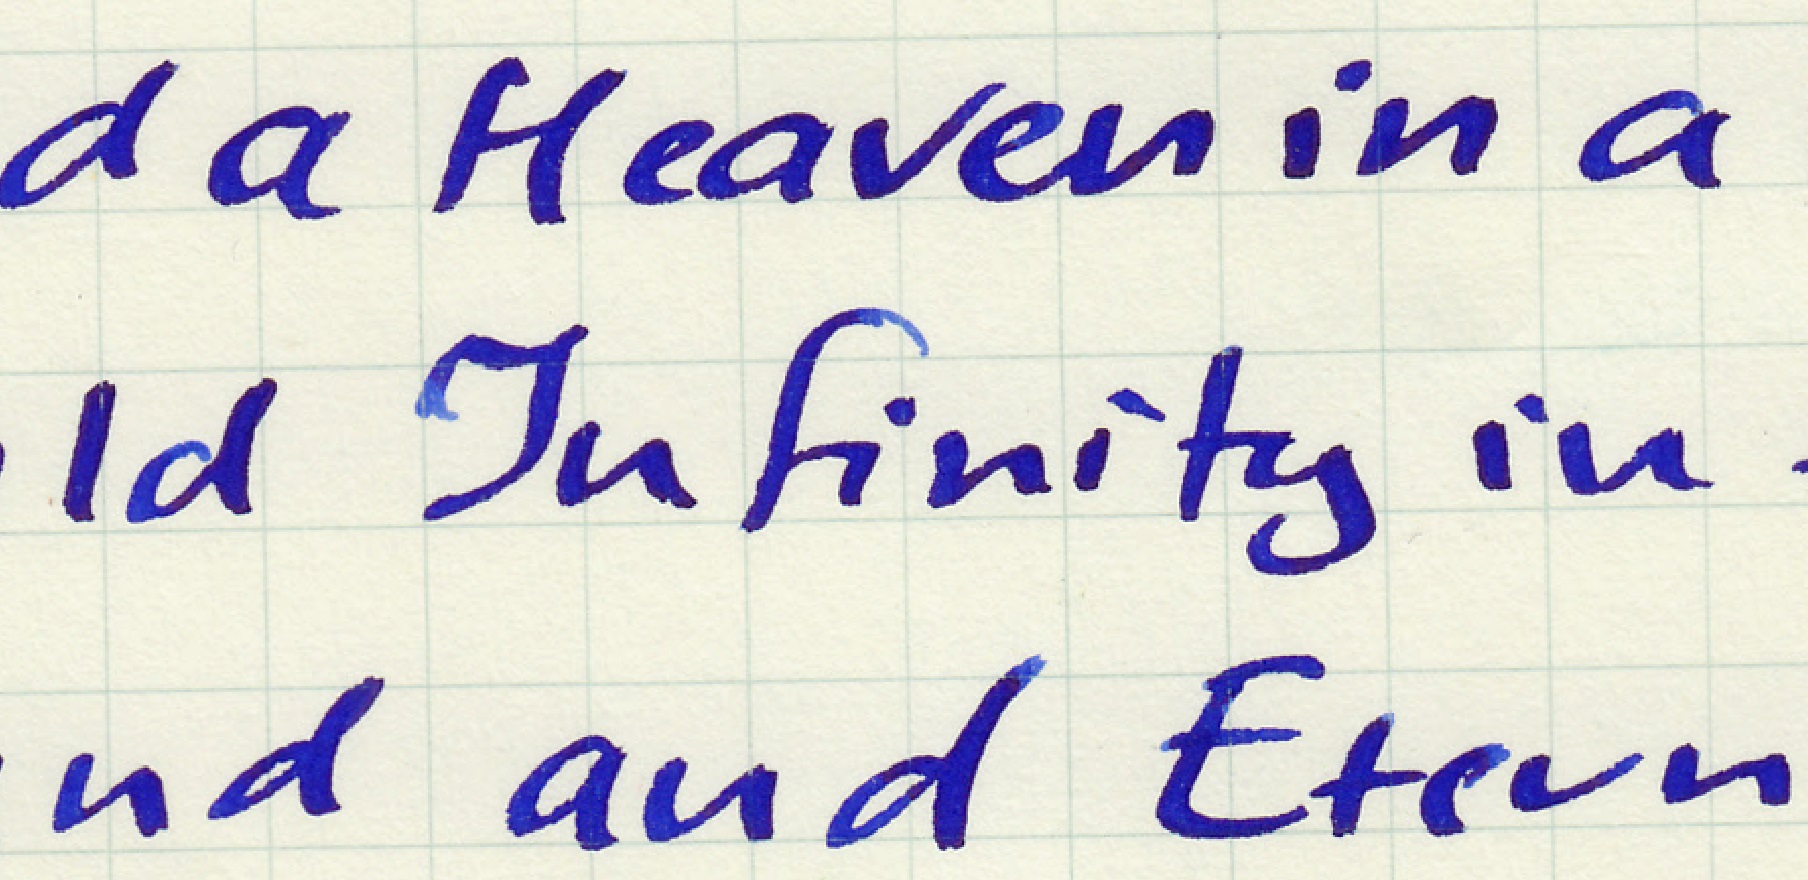 d a Heaven in a
ld Infinity in
nd and Etern